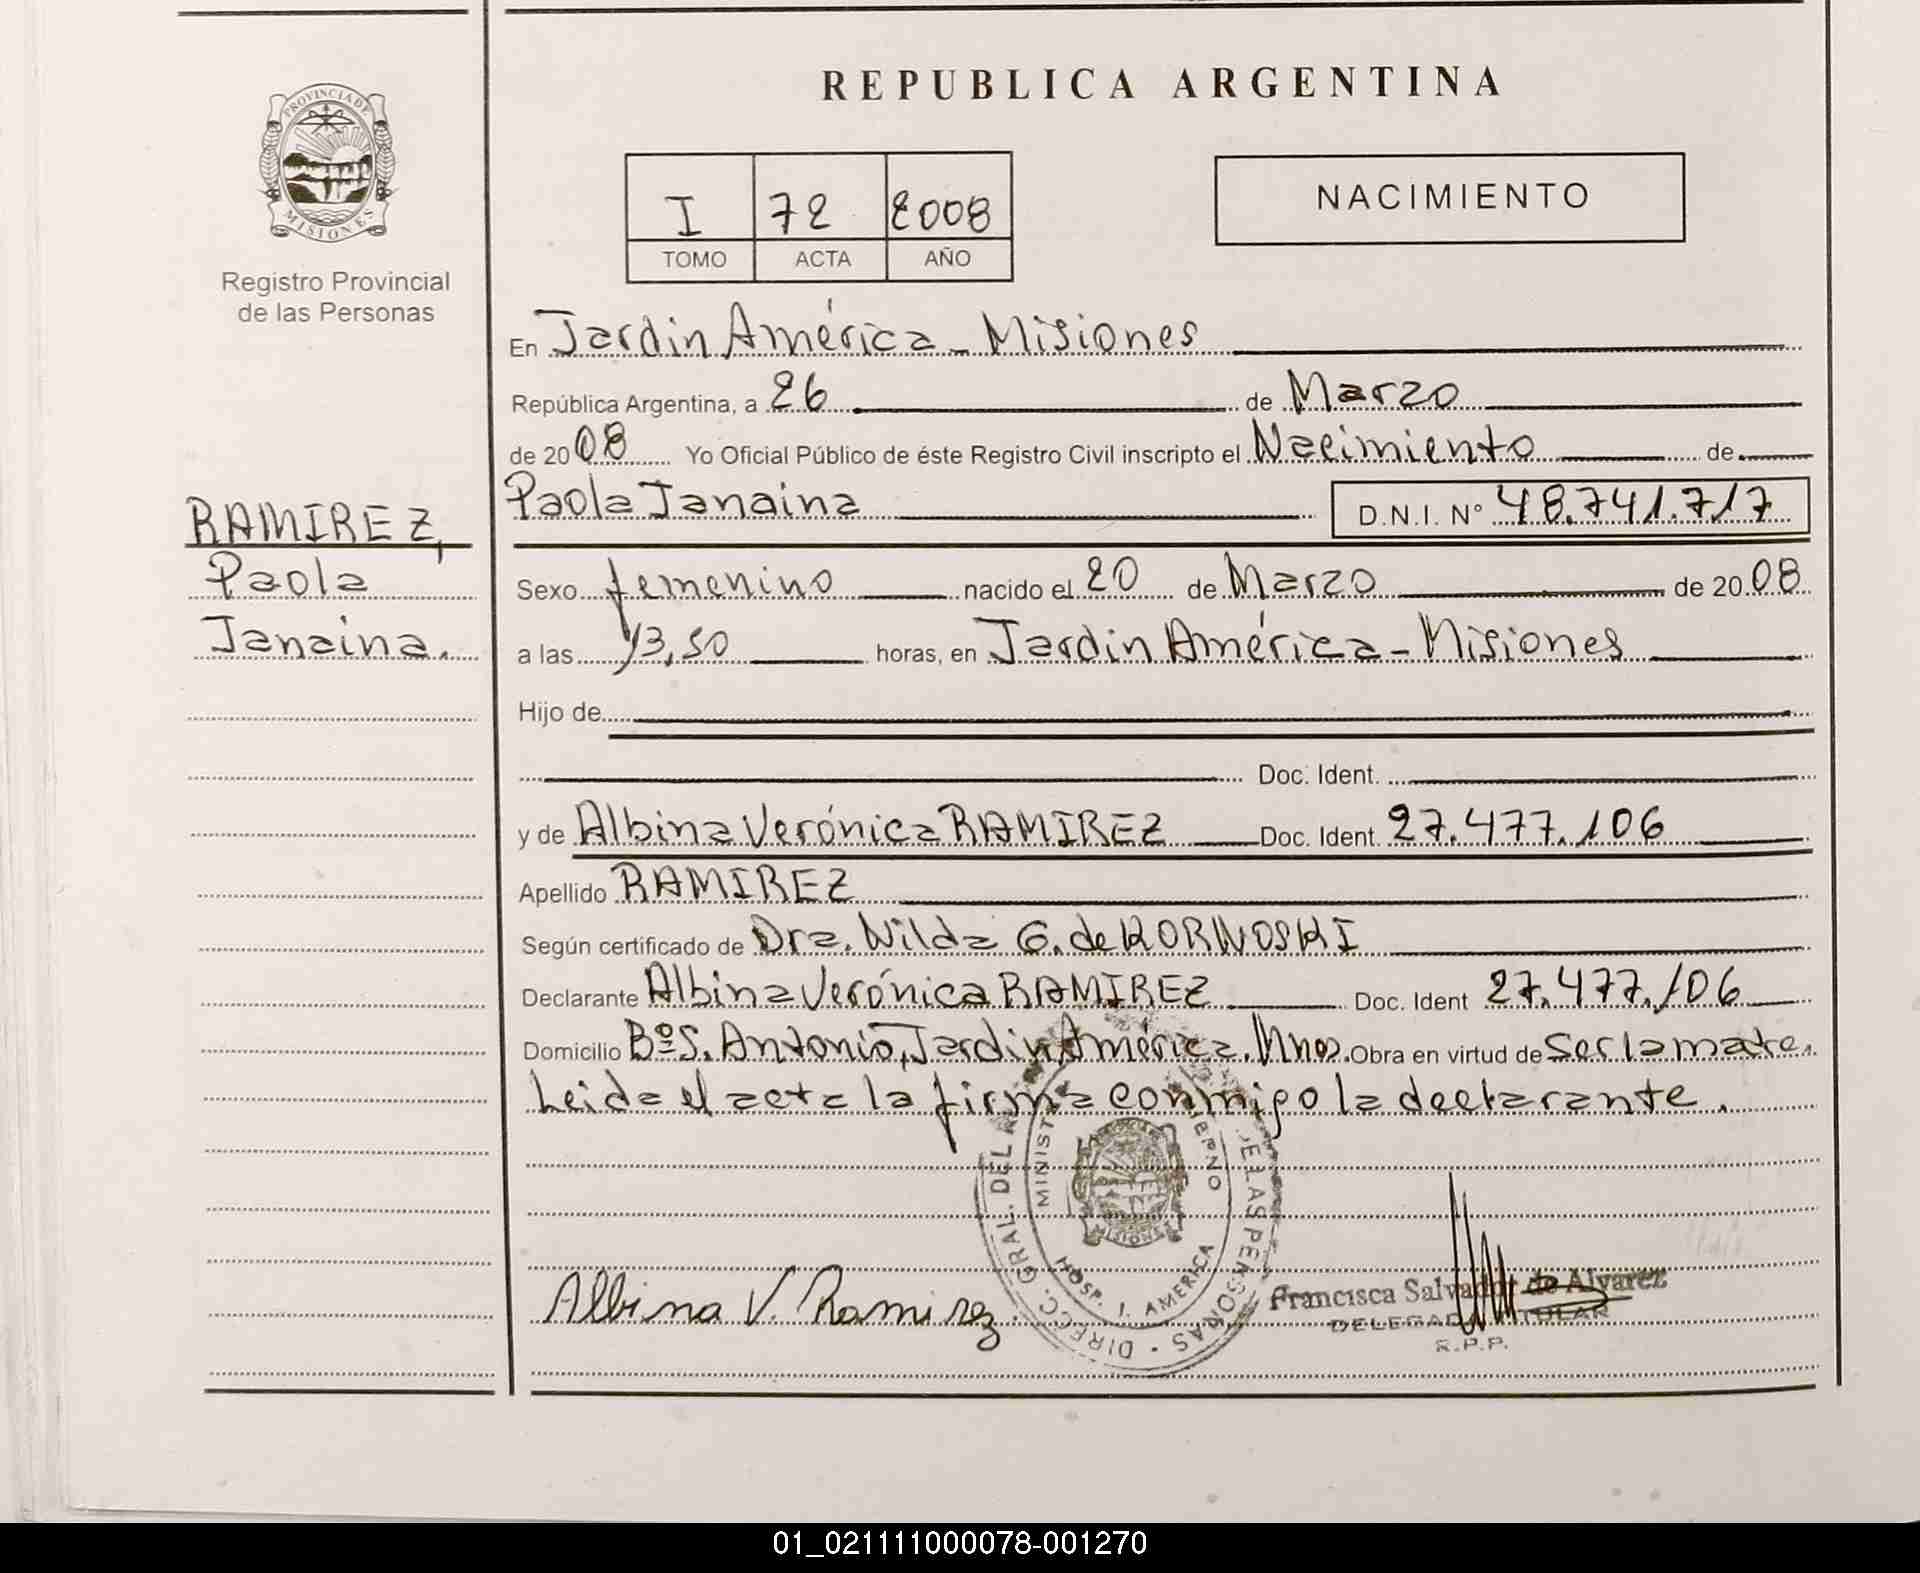 REPUBLICA ARGENTINA
PROVINCIA DE
MISIONES
Registro Provincial
de las Personas
I 72 2008
TOMO ACTA AÑO
NACIMIENTO
En Jardin América - Misiones
República Argentina, a 26 de Marzo
de 2008 Yo Oficial Público de éste Registro Civil inscripto el Nacimiento de
Paola Janaina D.N.I. Nº 48.741.717
RAMIREZ,
Paola
Janaina.
Sexo femenino nacido el 20 de Marzo de 2008
a las 13,50 horas, en Jardin América - Misiones
Hijo de
Doc. Ident.
y de Albina Verónica RAMIREZ Doc. Ident. 27.477.106
Apellido RAMIREZ
Según certificado de Dra. Nilda G. de KORNOSKI
Declarante Albina Verónica RAMIREZ Doc. Ident 27.477.106
Domicilio Bº S. Antonio, Jardin América. Mnes. Obra en virtud de Ser la madre.
Leida el acta la firma conmigo la declarante.
DIRECC. GRAL. DEL DE LAS PERSONAS
HOSP. J. AMERICA
MISIONES
Albina V. Ramirez
Francisca Salvador de Alvarez
DELEGADA TITULAR
R.P.P.
01_021111000078-001270